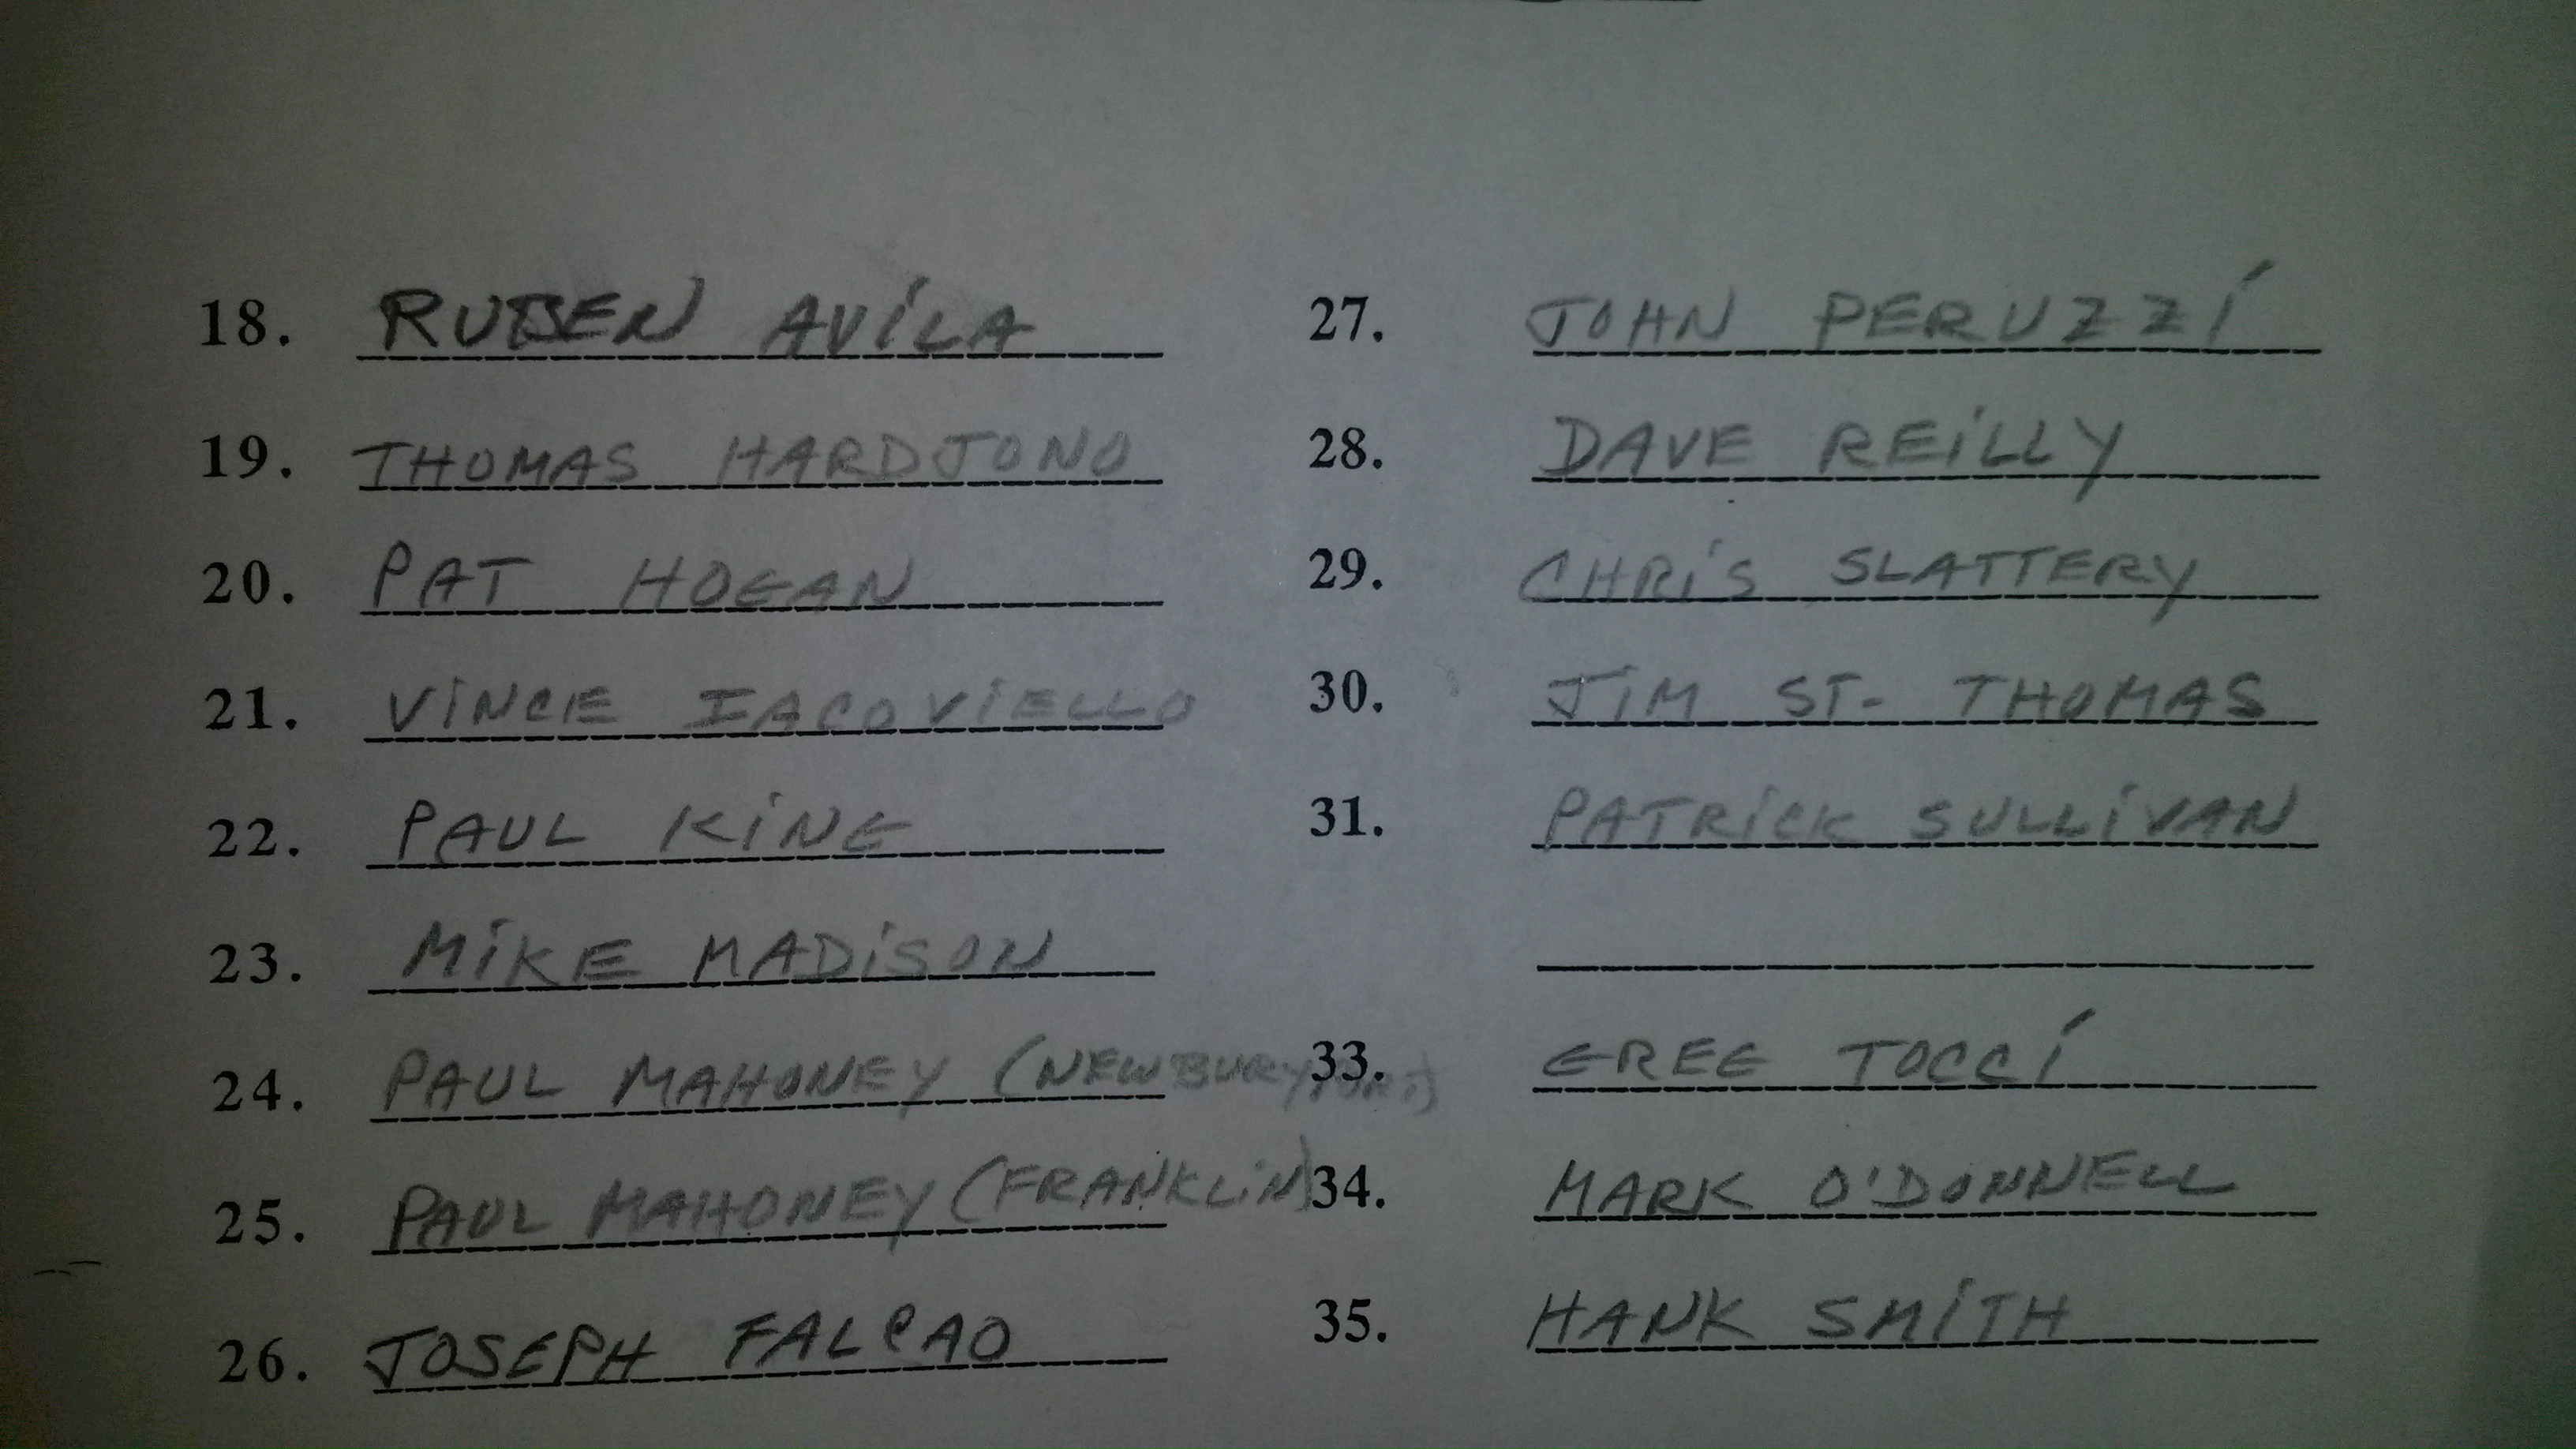 18. RUBEN AVILA
19. THOMAS HARDJONO
20. PAT HOGAN
21. VINCE IACOVIELLO
22. PAUL KING
23. MIKE MADISON
24. PAUL MAHONEY (NEWBURYPORT)
25. PAUL MAHONEY (FRANKLIN)
26. JOSEPH FALCAO
27. JOHN PERUZZI
28. DAVE REILLY
29. CHRIS SLATTERY
30. JIM ST. THOMAS
31. PATRICK SULLIVAN
33. GREG TOCCI
34. MARK O'DONNELL
35. HANK SMITH